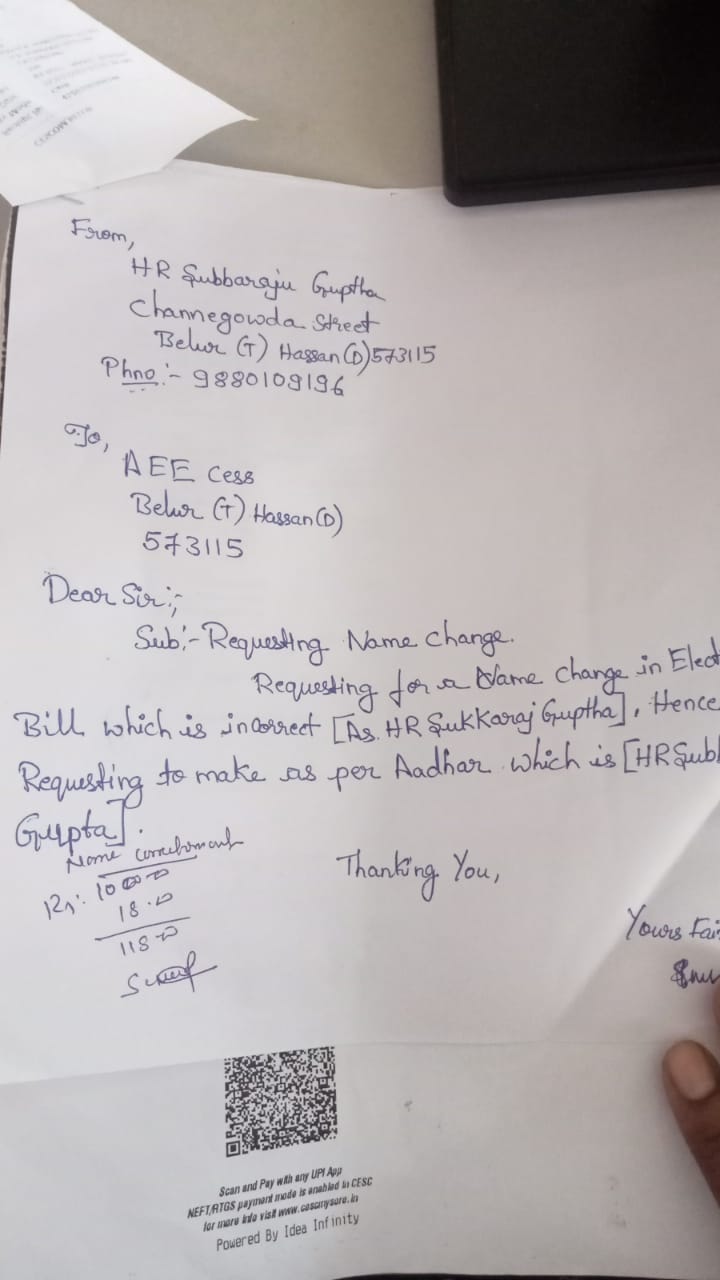 From,
HR Subbaraju Guptha
Channegowda Street
Belur (T) Hassan (D) 573115
Phno:- 9880109196
To,
AEE Cess
Belur (T) Hassan (D)
573115
Dear Sir:-
Sub:- Requesting Name Change.
Requesting for a Name Change in Elect
Bill which is incorrect [As HR Sukkaraj Guptha], Hence
Requesting to make as per Aadhar which is [HR Subb
Gupta].
Name
Thanking You,
Rs: 100
18.00
118
Yours Fai
Scan and Pay with any UPI App
NEFT/RTGS payment mode is enabled in CESC
for more info visit www.cescmysore.in
Powered By Idea Infinity